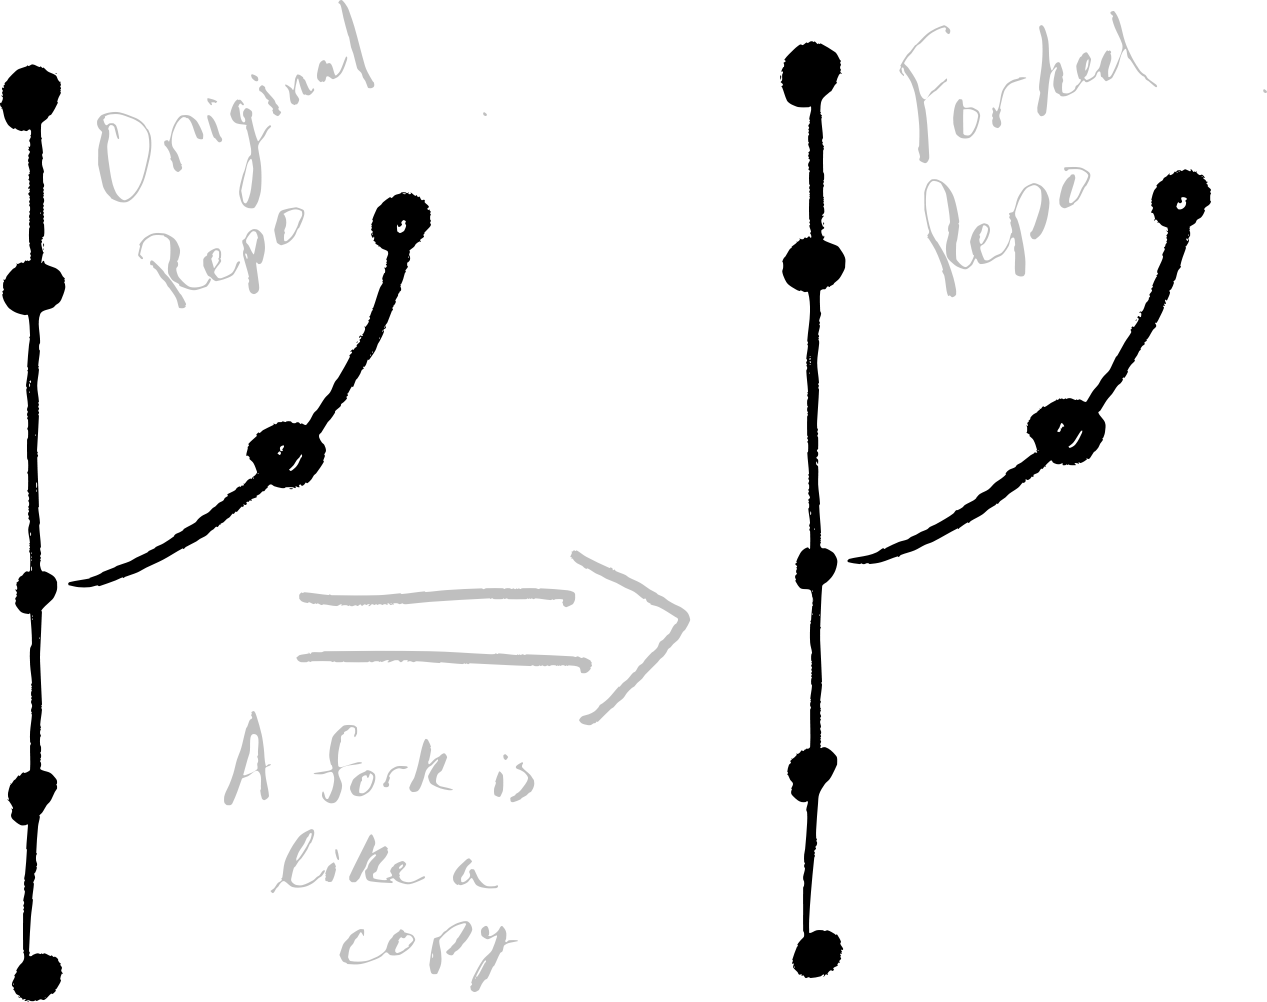 Original
Repo
Forked
Repo
A fork is
like a
copy